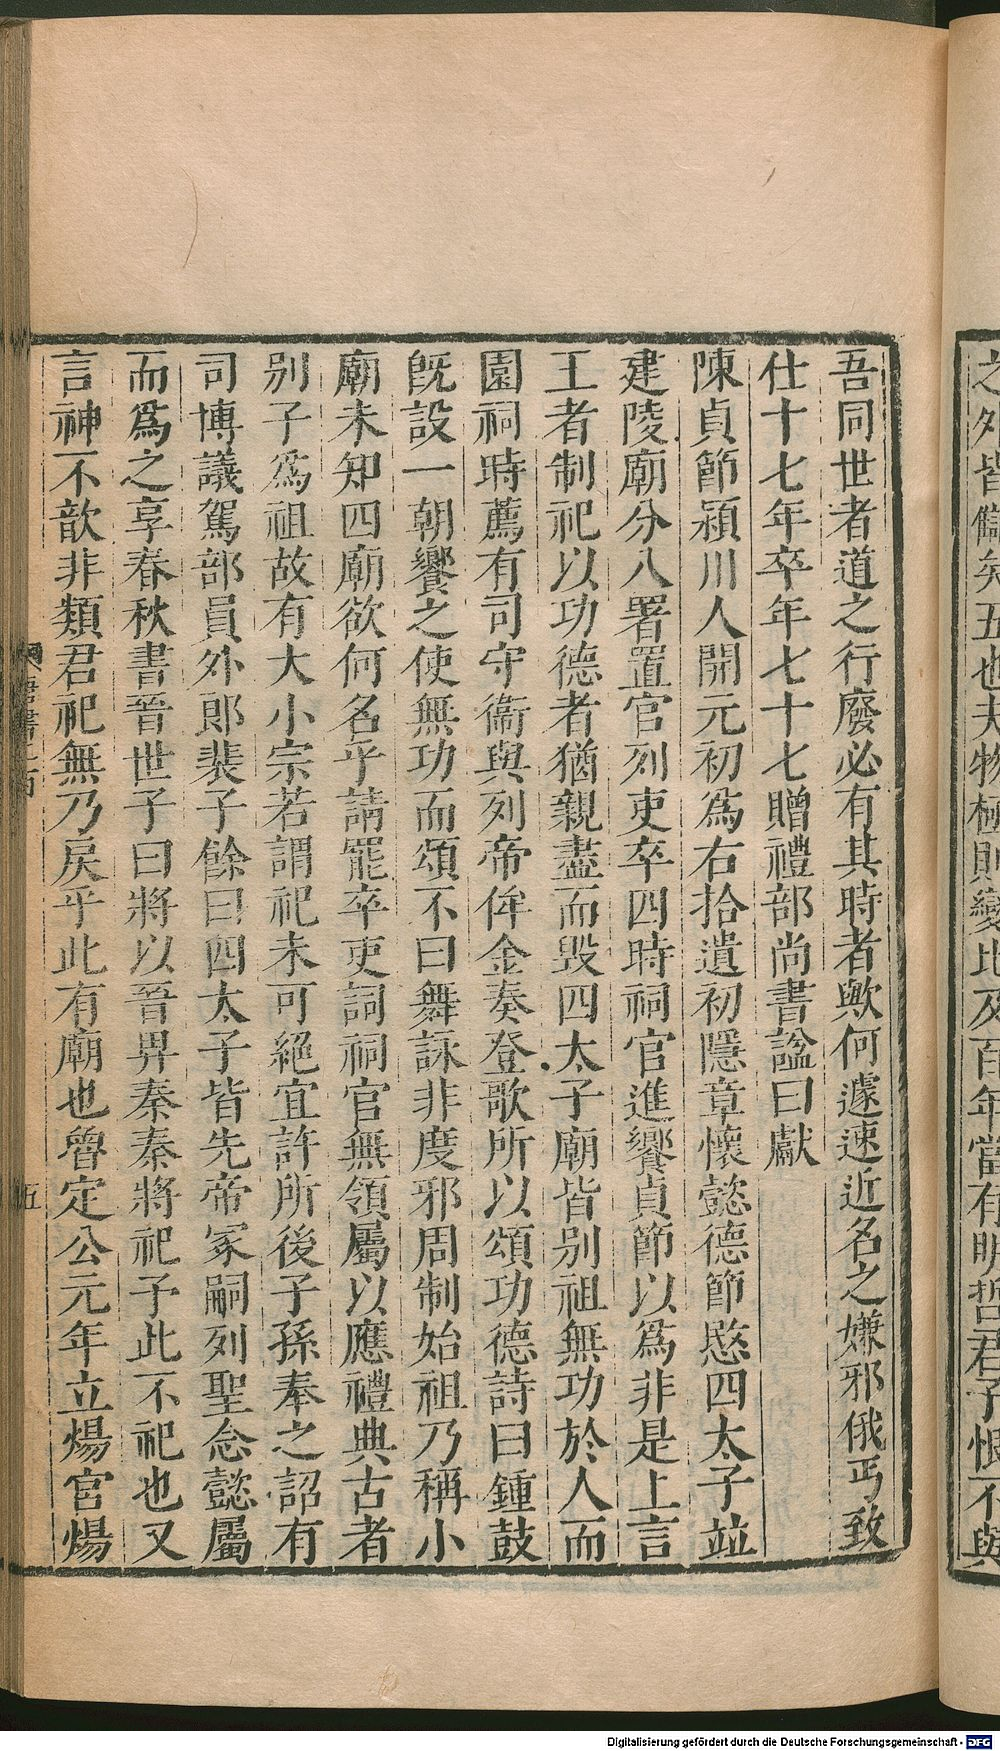 之外皆儔矣五也夫物極則變比及百年當有明哲君子恨不與
吾同世者道之行廢必有其時者歟何遽速近名之嫌邪俄丐致
仕十七年卒年七十七贈禮部尚書諡曰獻
陳貞節潁川人開元初爲右拾遺初隱章懷懿德節愍四太子並
建陵廟分八署置官列吏卒四時祠官進饗貞節以爲非是上言
王者制祀以功德者猶親盡而毀四太子廟皆別祖無功於人而
園祠時薦有司守衞與列帝侔金奏登歌所以頌功德詩曰鍾鼓
旣設一朝饗之使無功而頌不曰舞詠非度邪周制始祖乃稱小
廟未知四廟欲何名乎請罷卒吏詞祠官無領屬以應禮典古者
別子爲祖故有大小宗若謂祀未可絕宜許所後子孫奉之詔有
司博議駕部員外郎裴子餘曰四太子皆先帝冢嗣列聖念懿屬
而爲之享春秋書晉世子曰將以晉畀秦秦將祀予此不祀也又
言神不歆非類君祀無乃戾乎此有廟也魯定公元年立煬宮煬
唐書
五
Digitalisierung gefördert durch die Deutsche Forschungsgemeinschaft - DFG